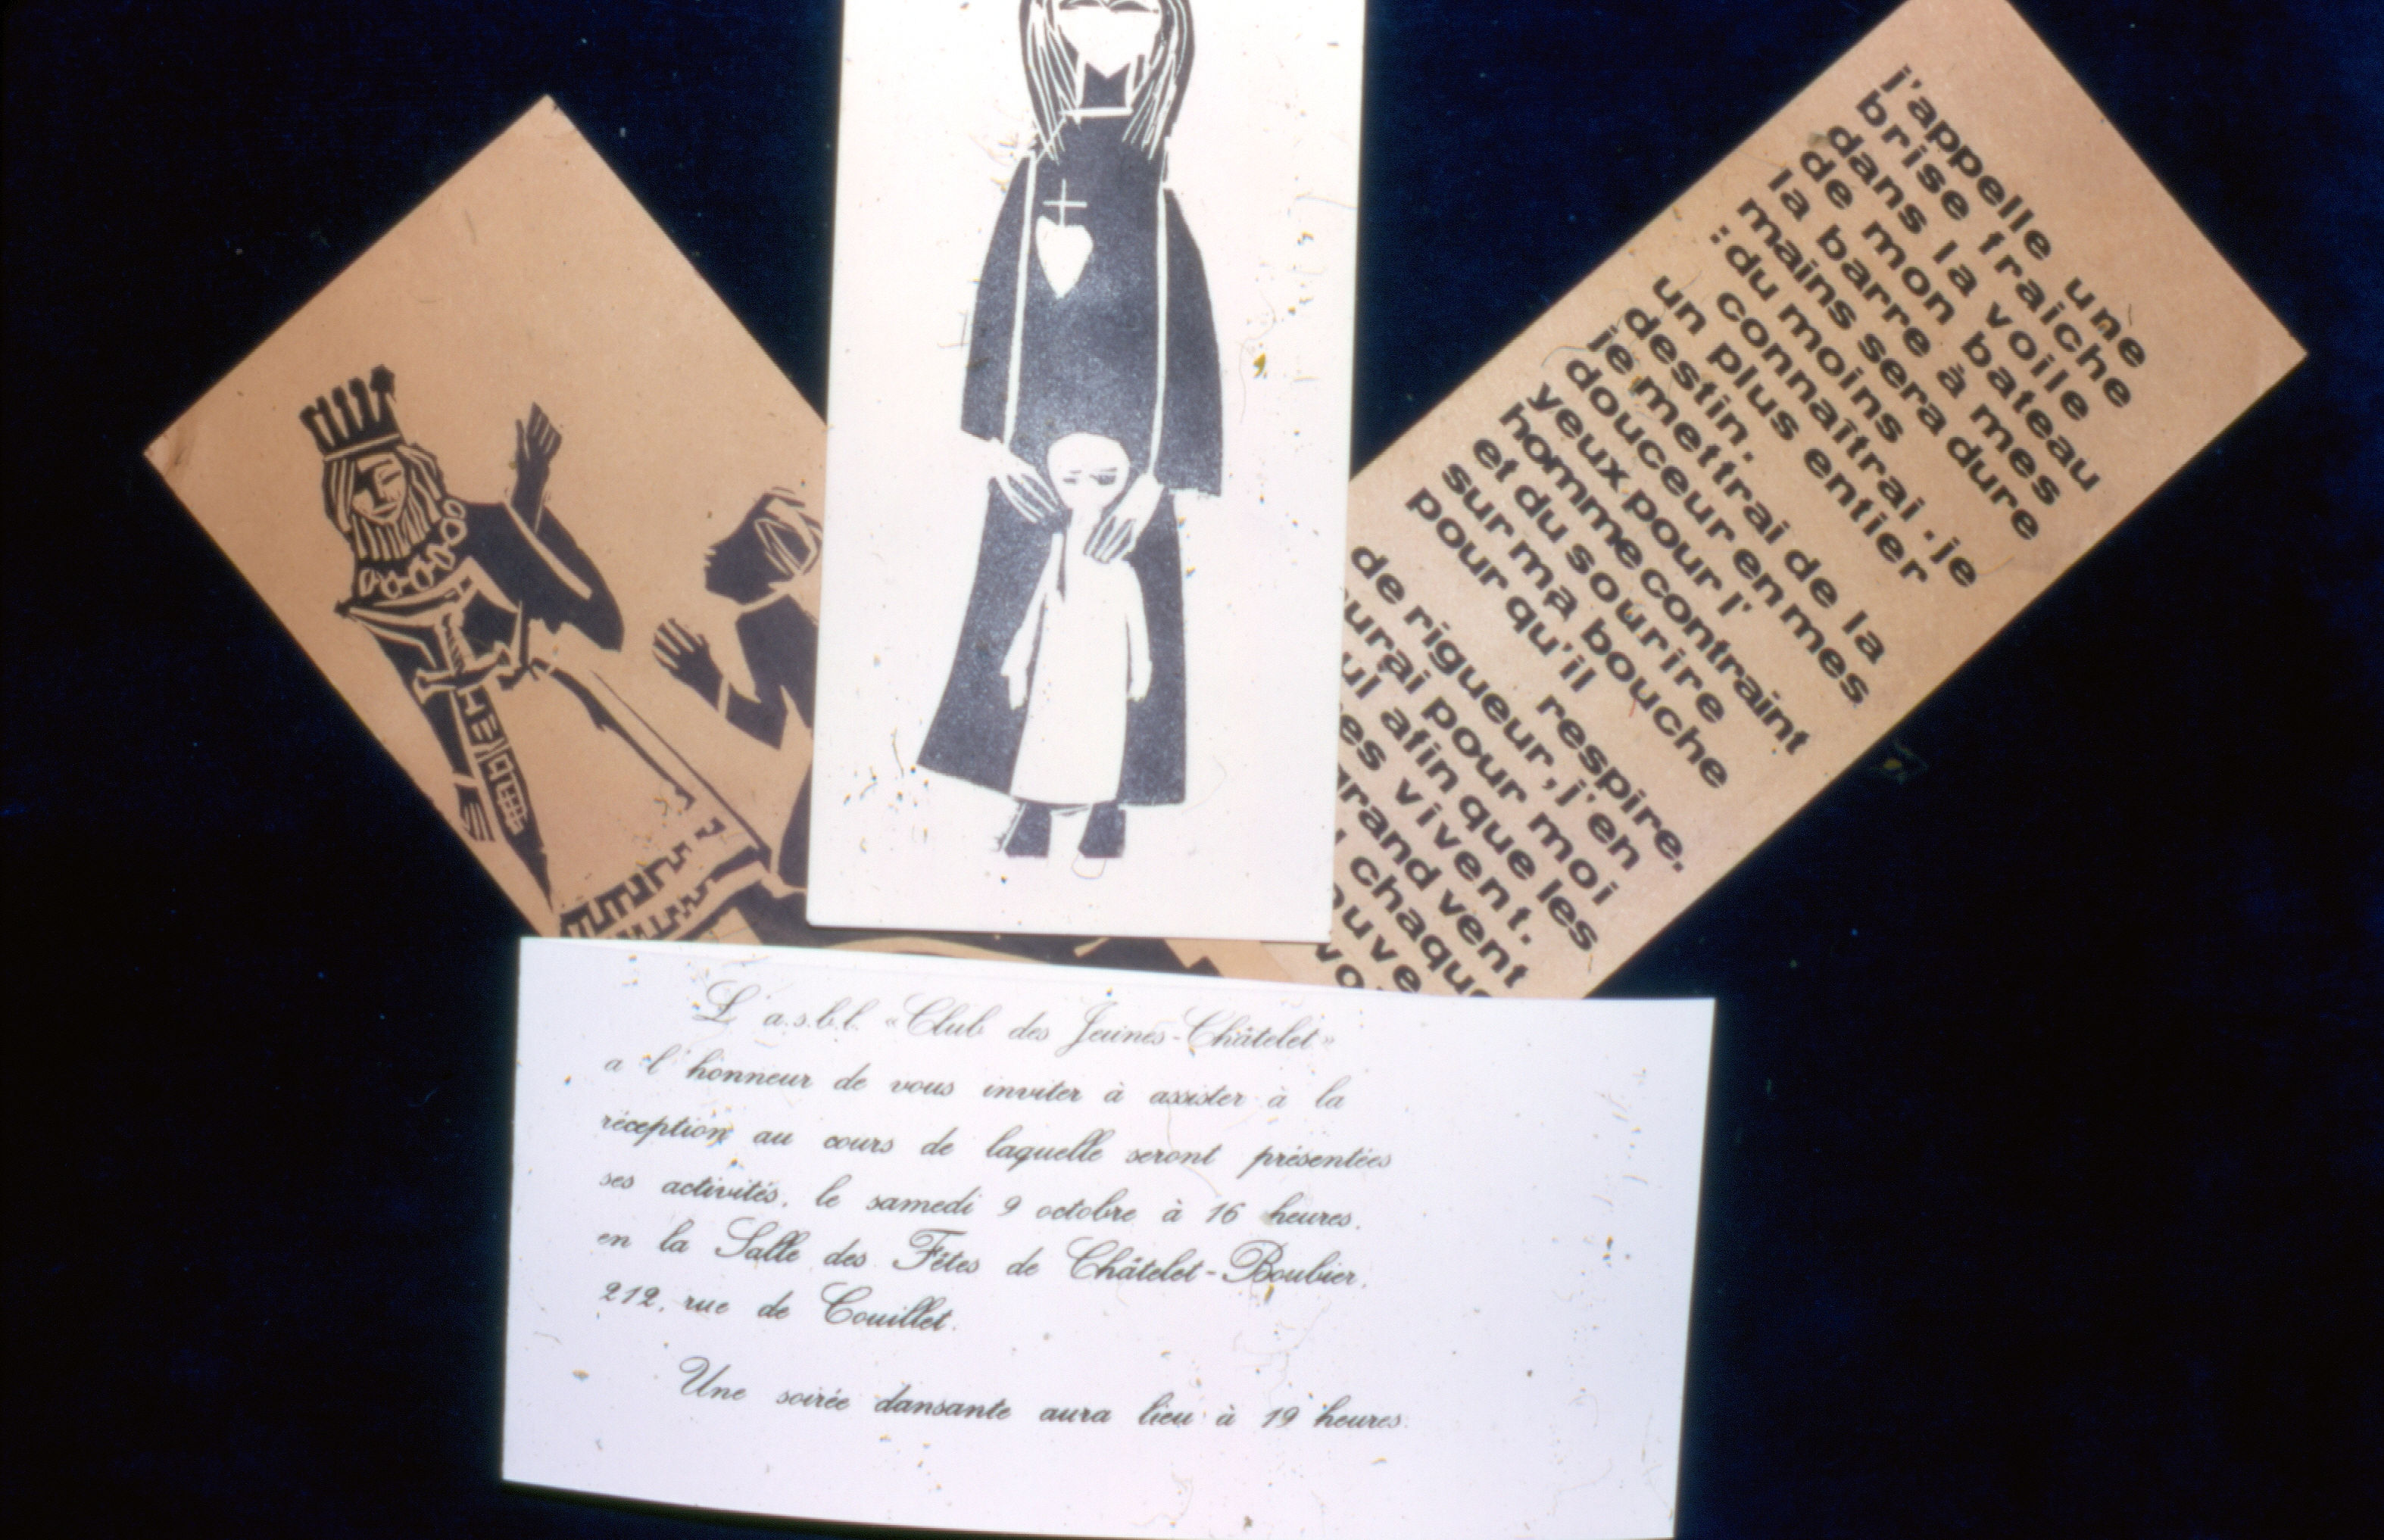 j'appelle une
brise fraiche
dans la voile
de mon bateau
la barre à mes
mains sera dure
: du moins
connaîtrai. je
un plus entier
destin.
je mettrai de la
douceur en mes
yeux pour l'
homme contraint
et du sourire
sur ma bouche
pour qu'il
respire.
de rigueur, j'en
pour moi
afin que les
vivent.
vent
chaque
L'a.s.b.l. «Club des Jeunes-Châtelet»
a l'honneur de vous inviter à assister à la
réception au cours de laquelle seront présentées
ses activités, le samedi 9 octobre à 16 heures,
en la Salle des Fêtes de Châtelet-Boubier,
212, rue de Couillet.
Une soirée dansante aura lieu à 19 heures.